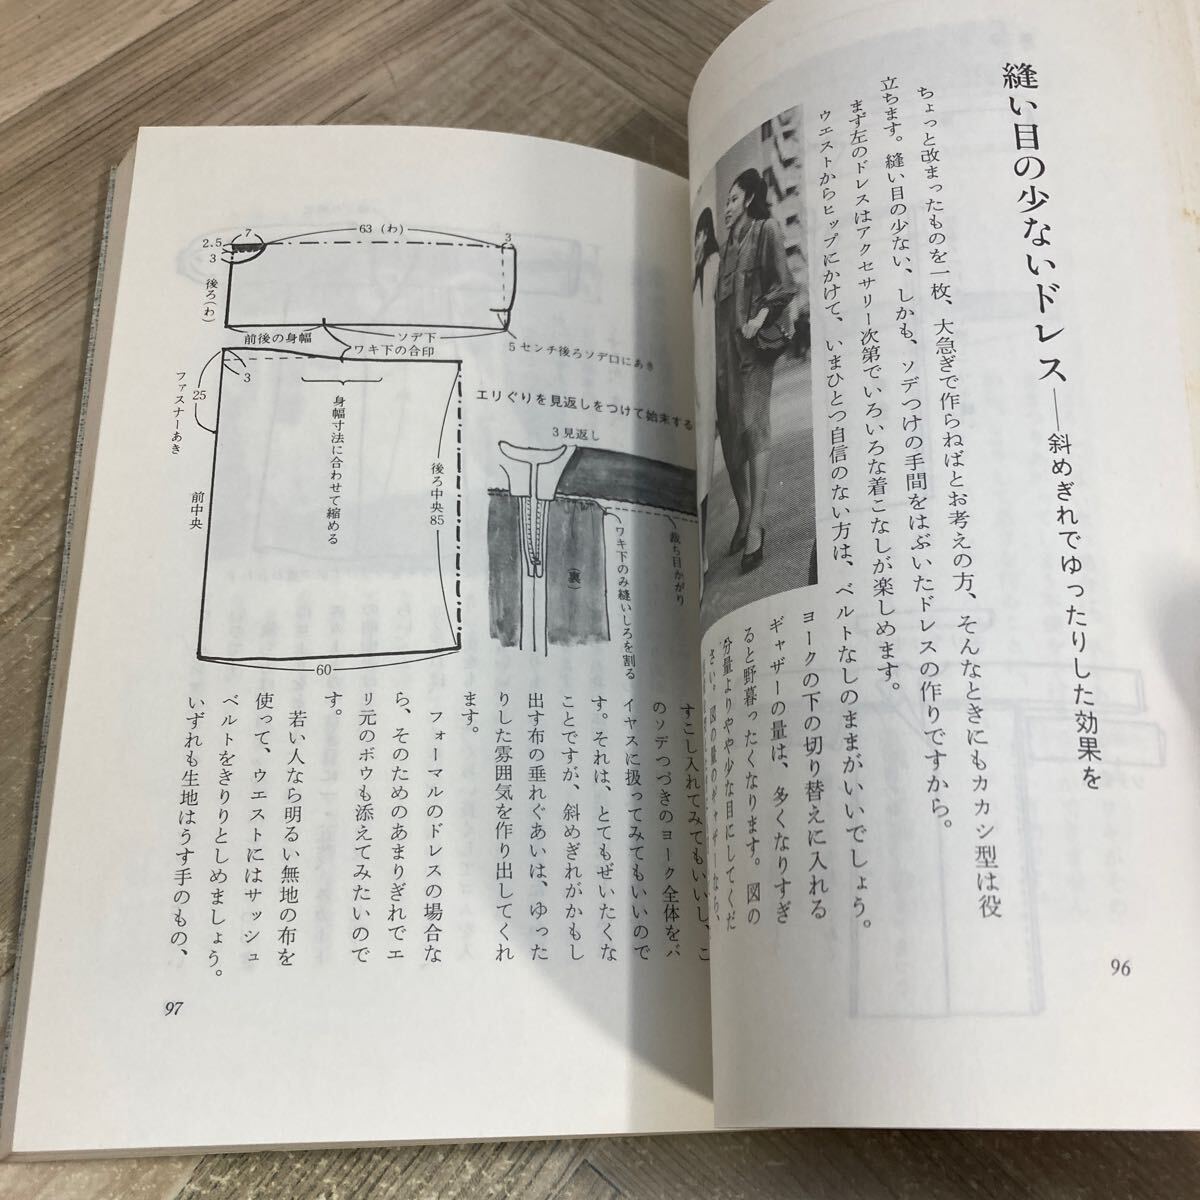 縫い目の少ないドレス――斜めぎれでゆったりした効果を
ちょっと改まったものを一枚、大急ぎで作らねばとお考えの方、そんなときにもカカシ型は役
立ちます。縫い目の少ない、しかも、ソデつけの手間をはぶいたドレスの作りですから。
まず左のドレスはアクセサリー次第でいろいろな着こなしが楽しめます。
ウエストからヒップにかけて、いまひとつ自信のない方は、ベルトなしのままがいいでしょう。
ヨークの下の切り替えに入れる
ギャザーの量は、多くなりすぎ
ると野暮ったくなります。図の
分量よりやや少な目にしてくだ
さい。図の量のギャザーなら、
96
2.5
7
63（わ）
3
3
後ろ（わ）
前後の身幅
ソデ下
ワキ下の合印
5センチ後ろソデ口にあき
3
25
ファスナーあき
身幅寸法に合わせて縮める
後ろ中央85
前中央
60
エリぐりを見返しをつけて始末する
3見返し
裁ち目かがり
ワキ下のみ縫いしろを割る
（裏）
すこし入れてみてもいいし、こ
のソデつづきのヨーク全体をバ
イヤスに扱ってみてもいいので
す。それは、とてもぜいたくな
ことですが、斜めぎれがかもし
出す布の垂れぐあいは、ゆった
りした雰囲気を作り出してくれ
ます。
フォーマルのドレスの場合な
ら、そのためのあまりぎれでエ
リ元のボウも添えてみたいので
す。
若い人なら明るい無地の布を
使って、ウエストにはサッシュ
ベルトをきりりとしめましょう。
いずれも生地はうす手のもの、
97